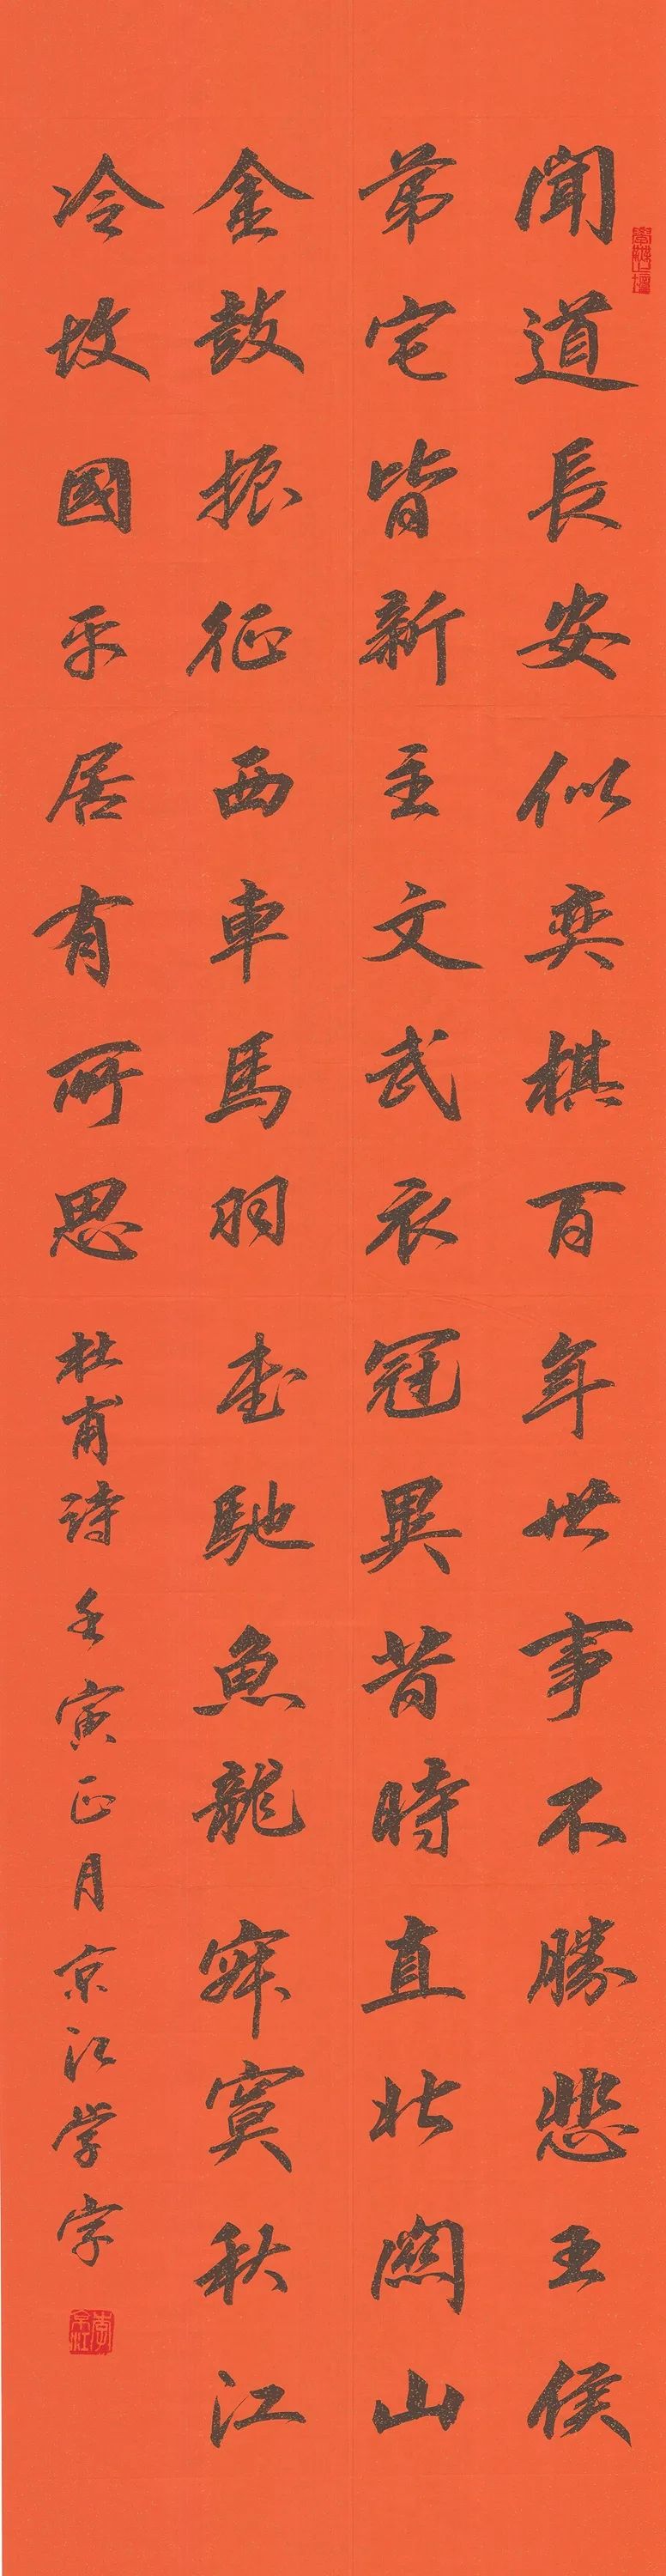 聞道長安似奕棋百年世事不勝悲王侯
苐宅皆新主文武衣冠異昔時直北關山
金鼓振征西車馬羽書馳魚龍寂寞秋江
冷故國平居有所思 杜甫詩 壬寅正月京江学字